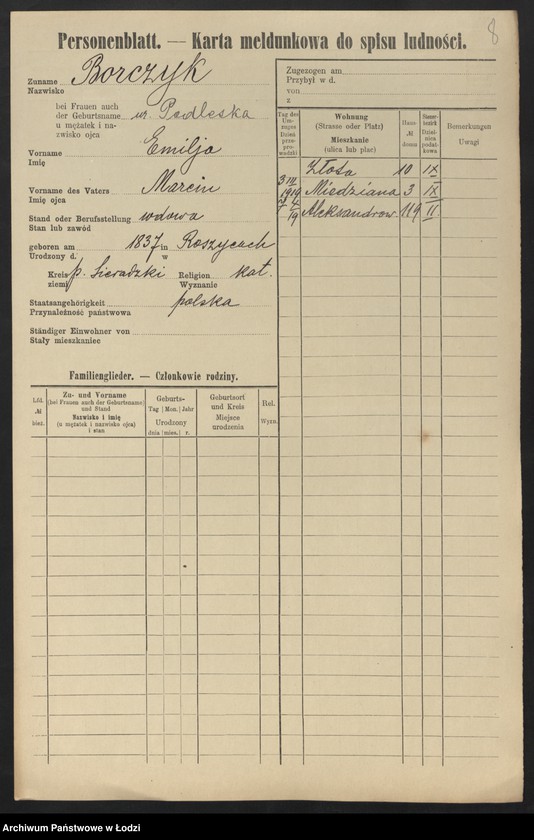 8
Personenblatt. — Karta meldunkowa do spisu ludności.
Zuname Borczyk
Nazwisko
bei Frauen auch
der Geburtsname ur. Podleska
u mężatek i na-
zwisko ojca
Vorname Emilja
Imię
Vorname des Vaters Marcin
Imię ojca
Stand oder Berufsstellung wdowa
Stan lub zawód
geboren am 1837 in Roszycach
Urodzony d. w
Kreis p. Sieradzki Religion kat.
ziemi Wyznanie
Staatsangehörigkeit polska
Przynależność państwowa
Ständiger Einwohner von
Stały mieszkaniec
Familienglieder. — Członkowie rodziny.
Lfd. № bież.
Zu- und Vorname
(bei Frauen auch der Geburtsname)
und Stand
Nazwisko i imię
(u mężatek i nazwisko ojca)
i stan
Geburts-
Tag | Mon. | Jahr
Urodzony
dnia | mies. | r.
Geburtsort
und Kreis
Miejsce
urodzenia
Rel.
Wyzn.
Zugezogen am
Przybył w d.
von
z
Tag des
Um-
zuges
Dzień
prze-
pro-
wadzki
Wohnung
(Strasse oder Platz)
Mieszkanie
(ulica lub plac)
Haus-
№
domu
Steuer-
bezirk
Dziel-
nica
podat-
kowa
Bemerkungen
Uwagi
Złota 10 IX
3 III 1919 Miedziana 3 IX
19 Aleksandrow. 119 II
Archiwum Państwowe w Łodzi